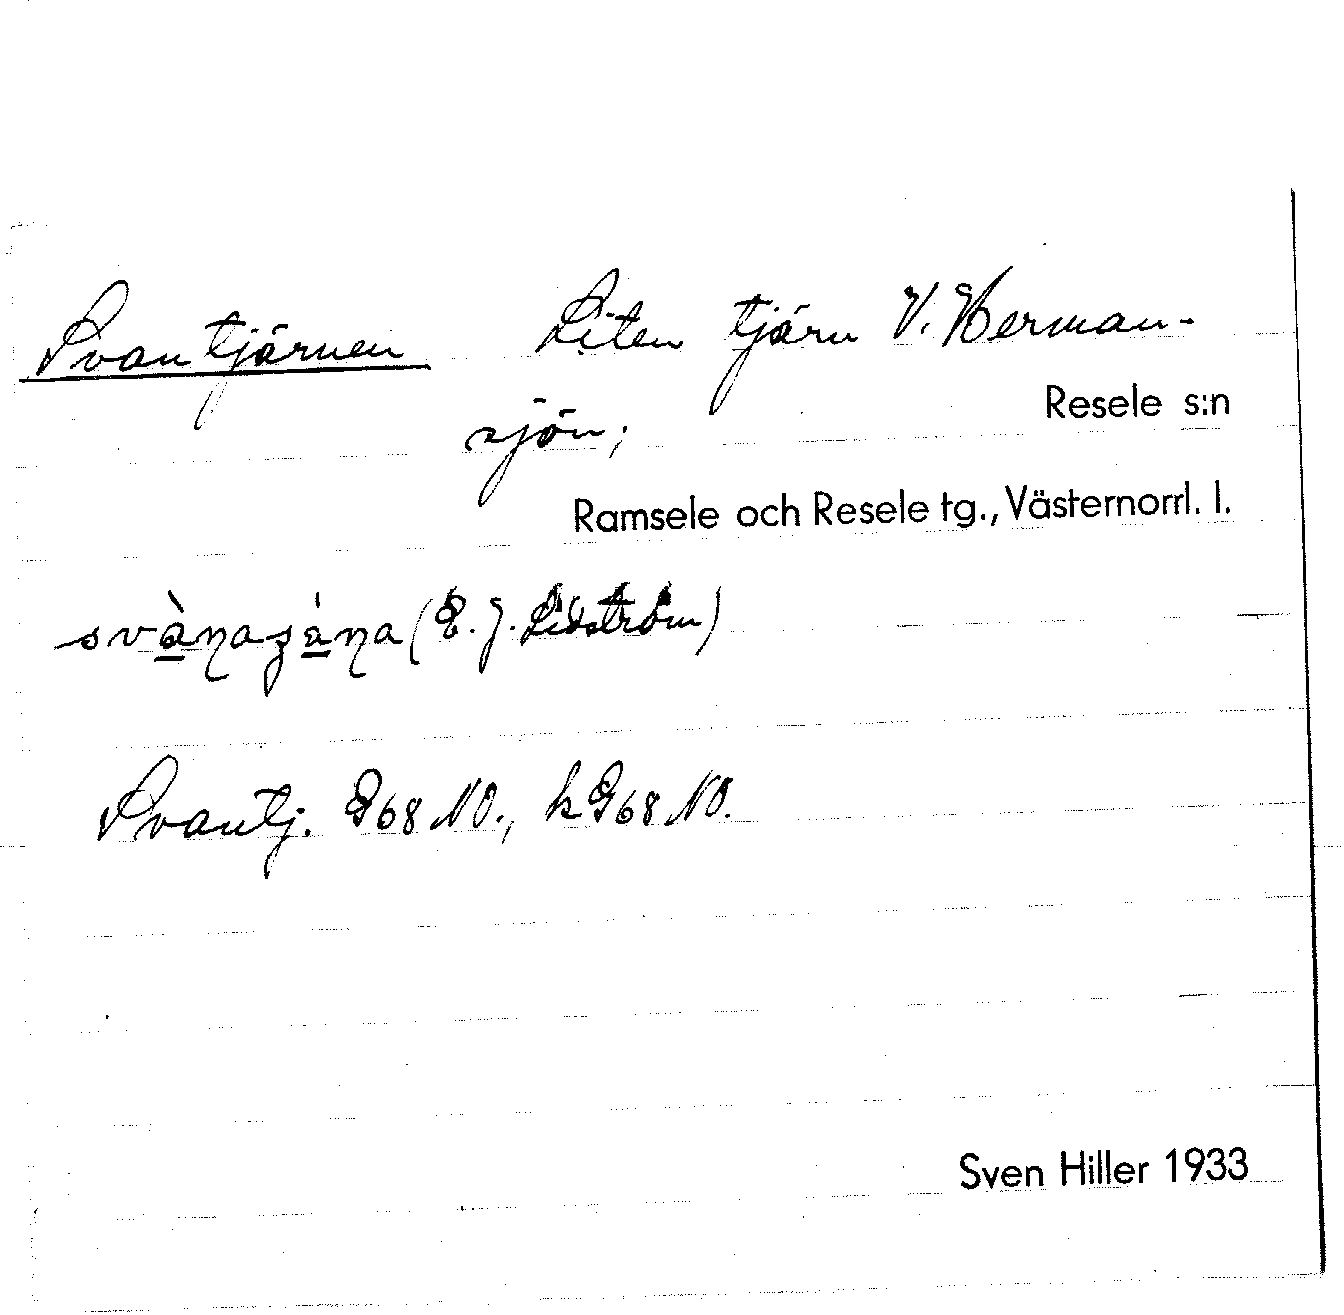 Svantjärnen Liten tjärn V. Herman-
sjön;
Resele s:n
Ramsele och Resele tg., Västernorrl. l.
(E. J. Lidström)
Svantj. G68 NO., kG68 NO.
Sven Hiller 1933